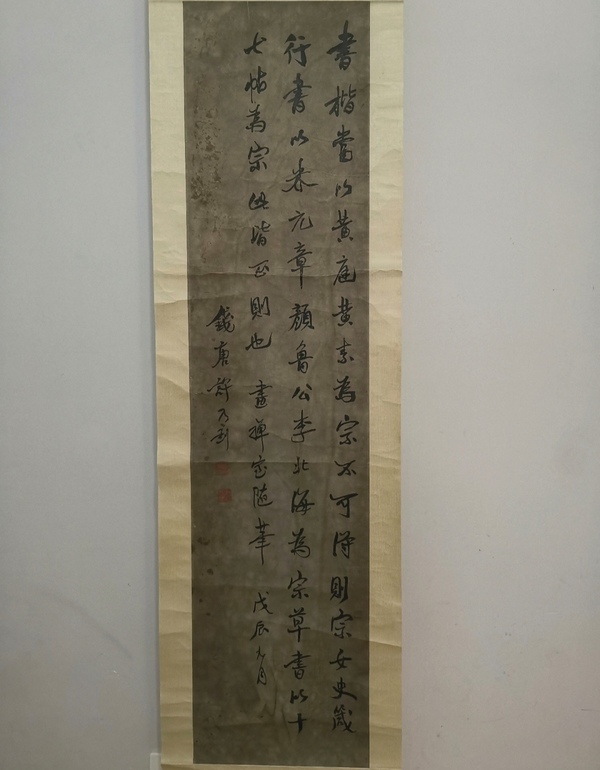 書楷當以黄庭黄素為宗不可得則宗女史箴
行書以米元章顏魯公李北海為宗草書以十
七帖為宗此皆正則也 畫禪室隨筆 戊辰九月
錢唐許乃釗